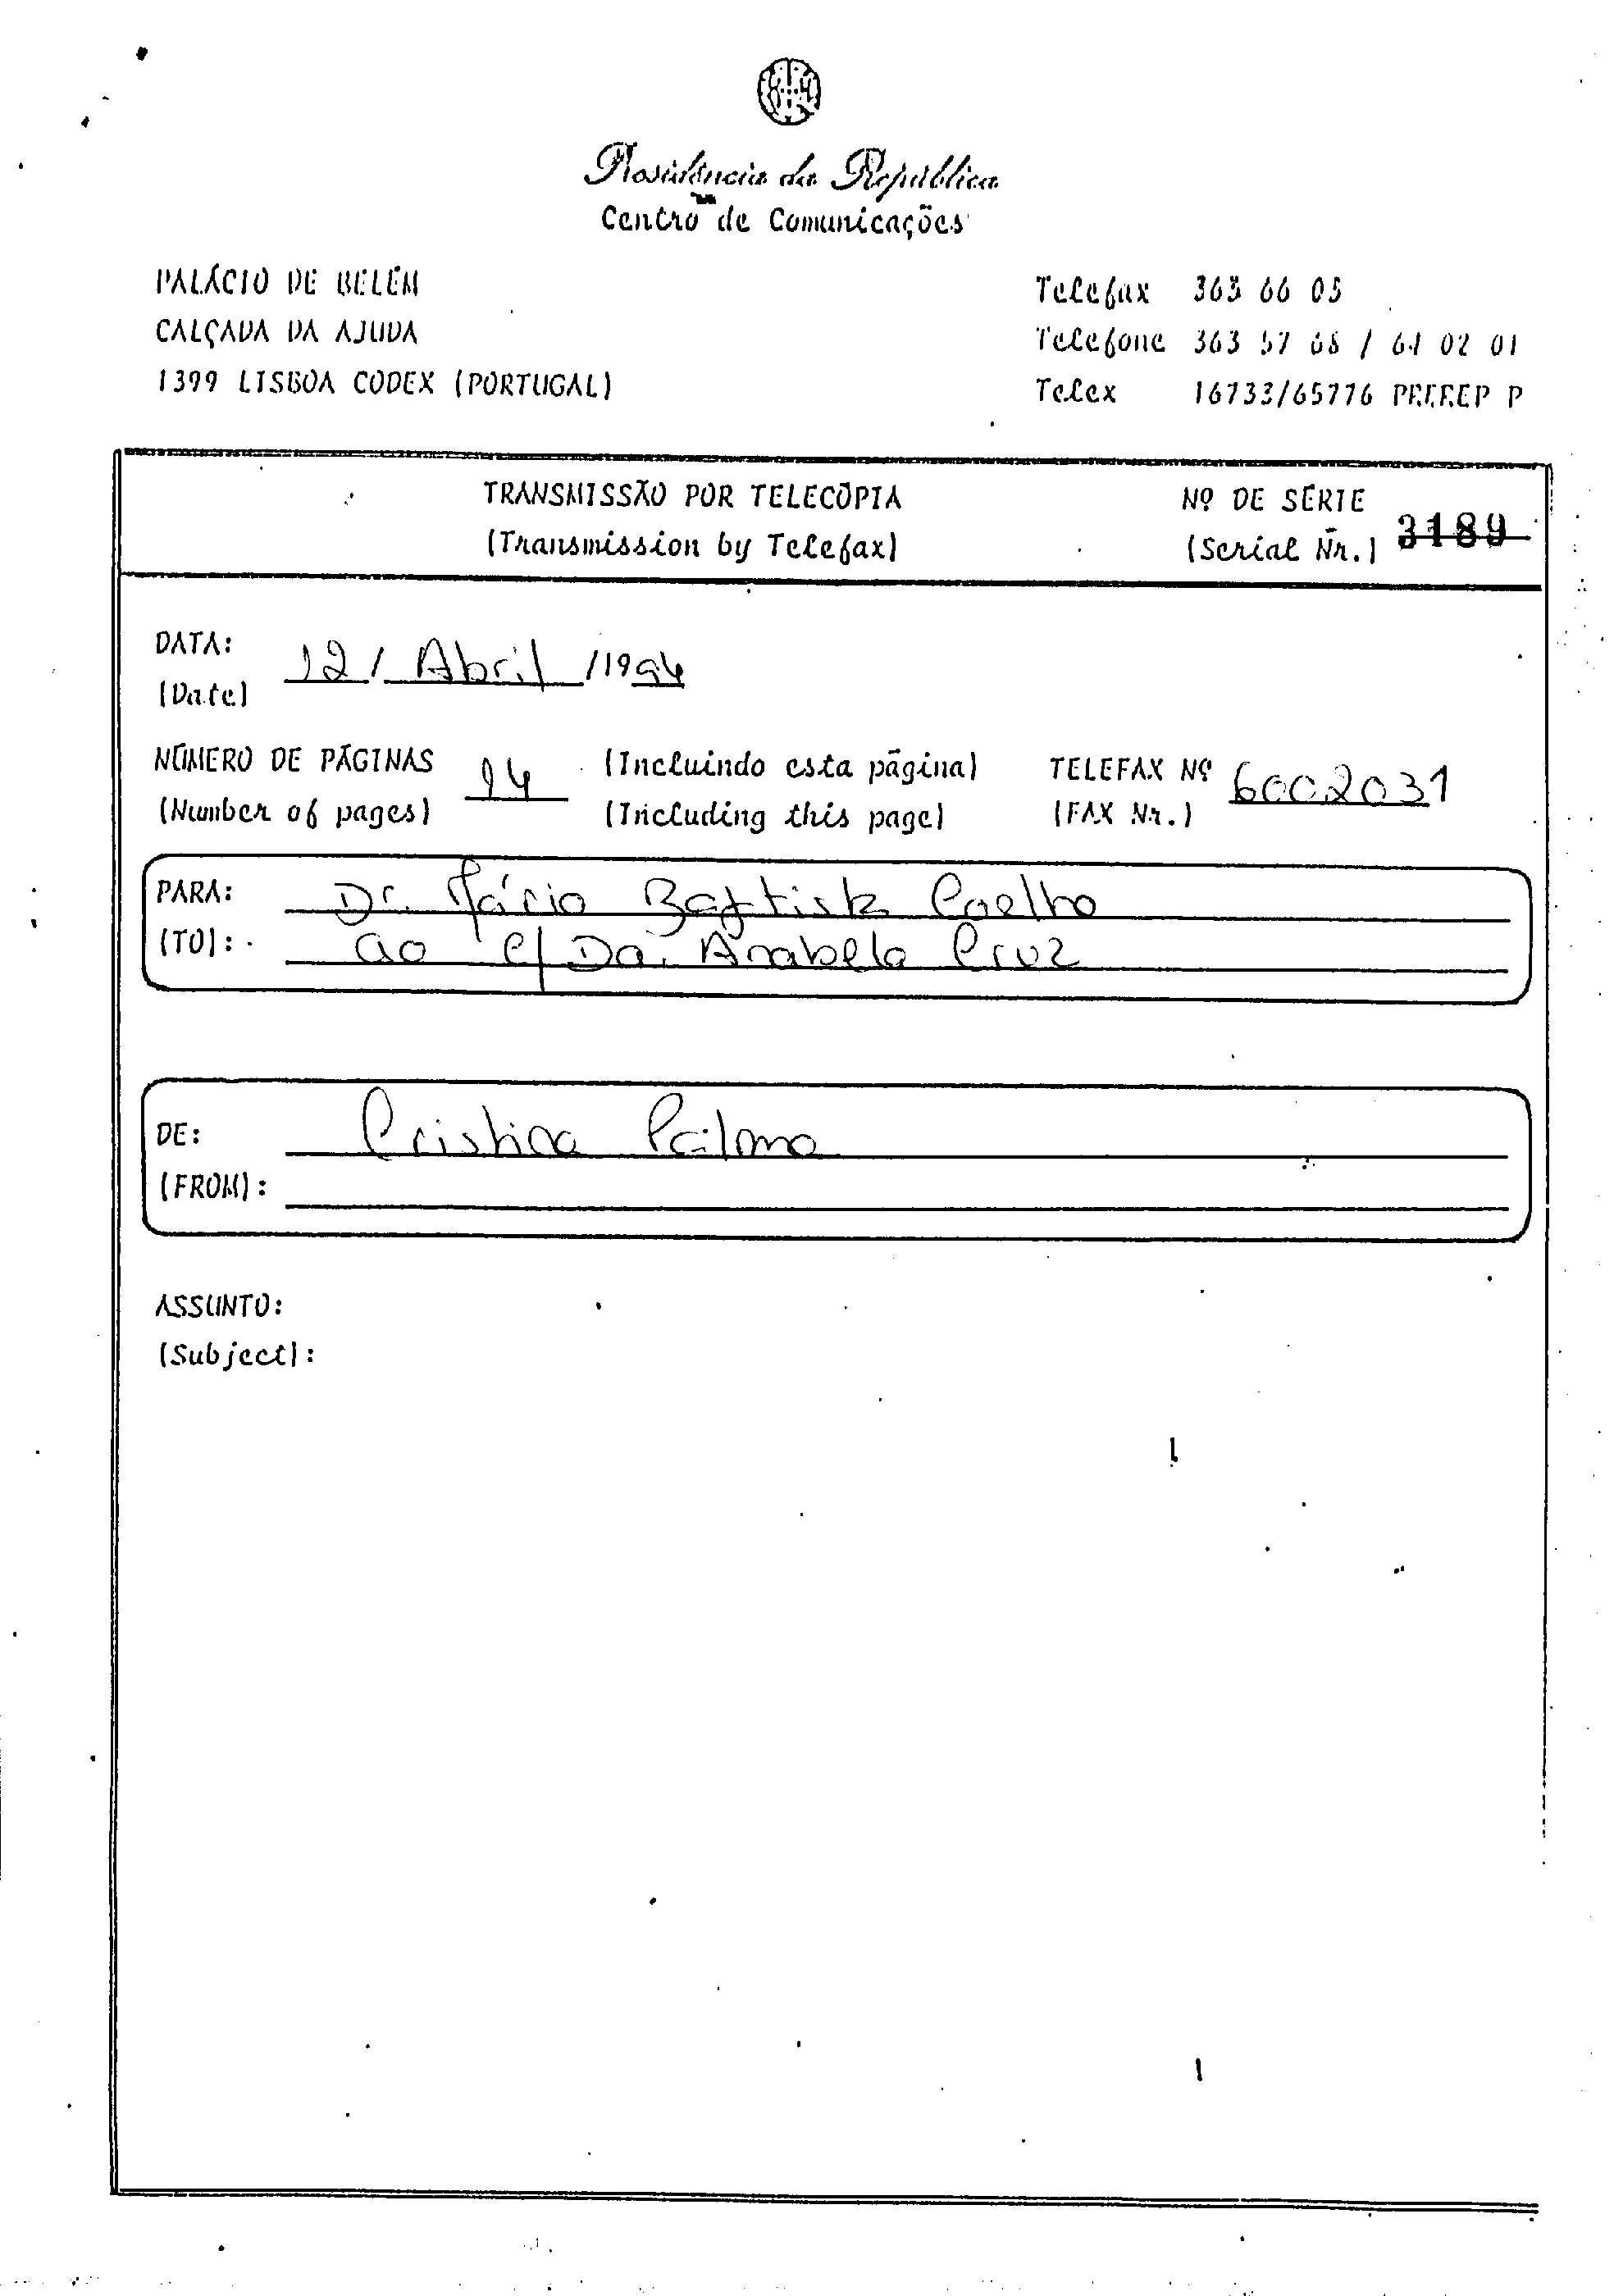 Presidência da República
Centro de Comunicações
PALÁCIO DE BELÉM
CALÇADA DA AJUDA
1399 LISBOA CODEX (PORTUGAL)
Telefax 363 66 03
Telefone 363 57 68 / 64 02 01
Telex 16733/65776 P P
TRANSMISSÃO POR TELECÓPIA
(Transmission by Telefax)
Nº DE SÉRIE
(Serial Nr.) 3189
DATA: 12/ Abril /1994
(Date)
NÚMERO DE PÁGINAS 14 (Incluindo esta página) TELEFAX Nº 6002031
(Number of pages) (Including this page) (FAX Nr.)
PARA: Dr. Mário Baptista Coelho
(TO): ao c/ Da. Anabela Cruz
DE: Cristina Palma
(FROM):
ASSUNTO:
(Subject):